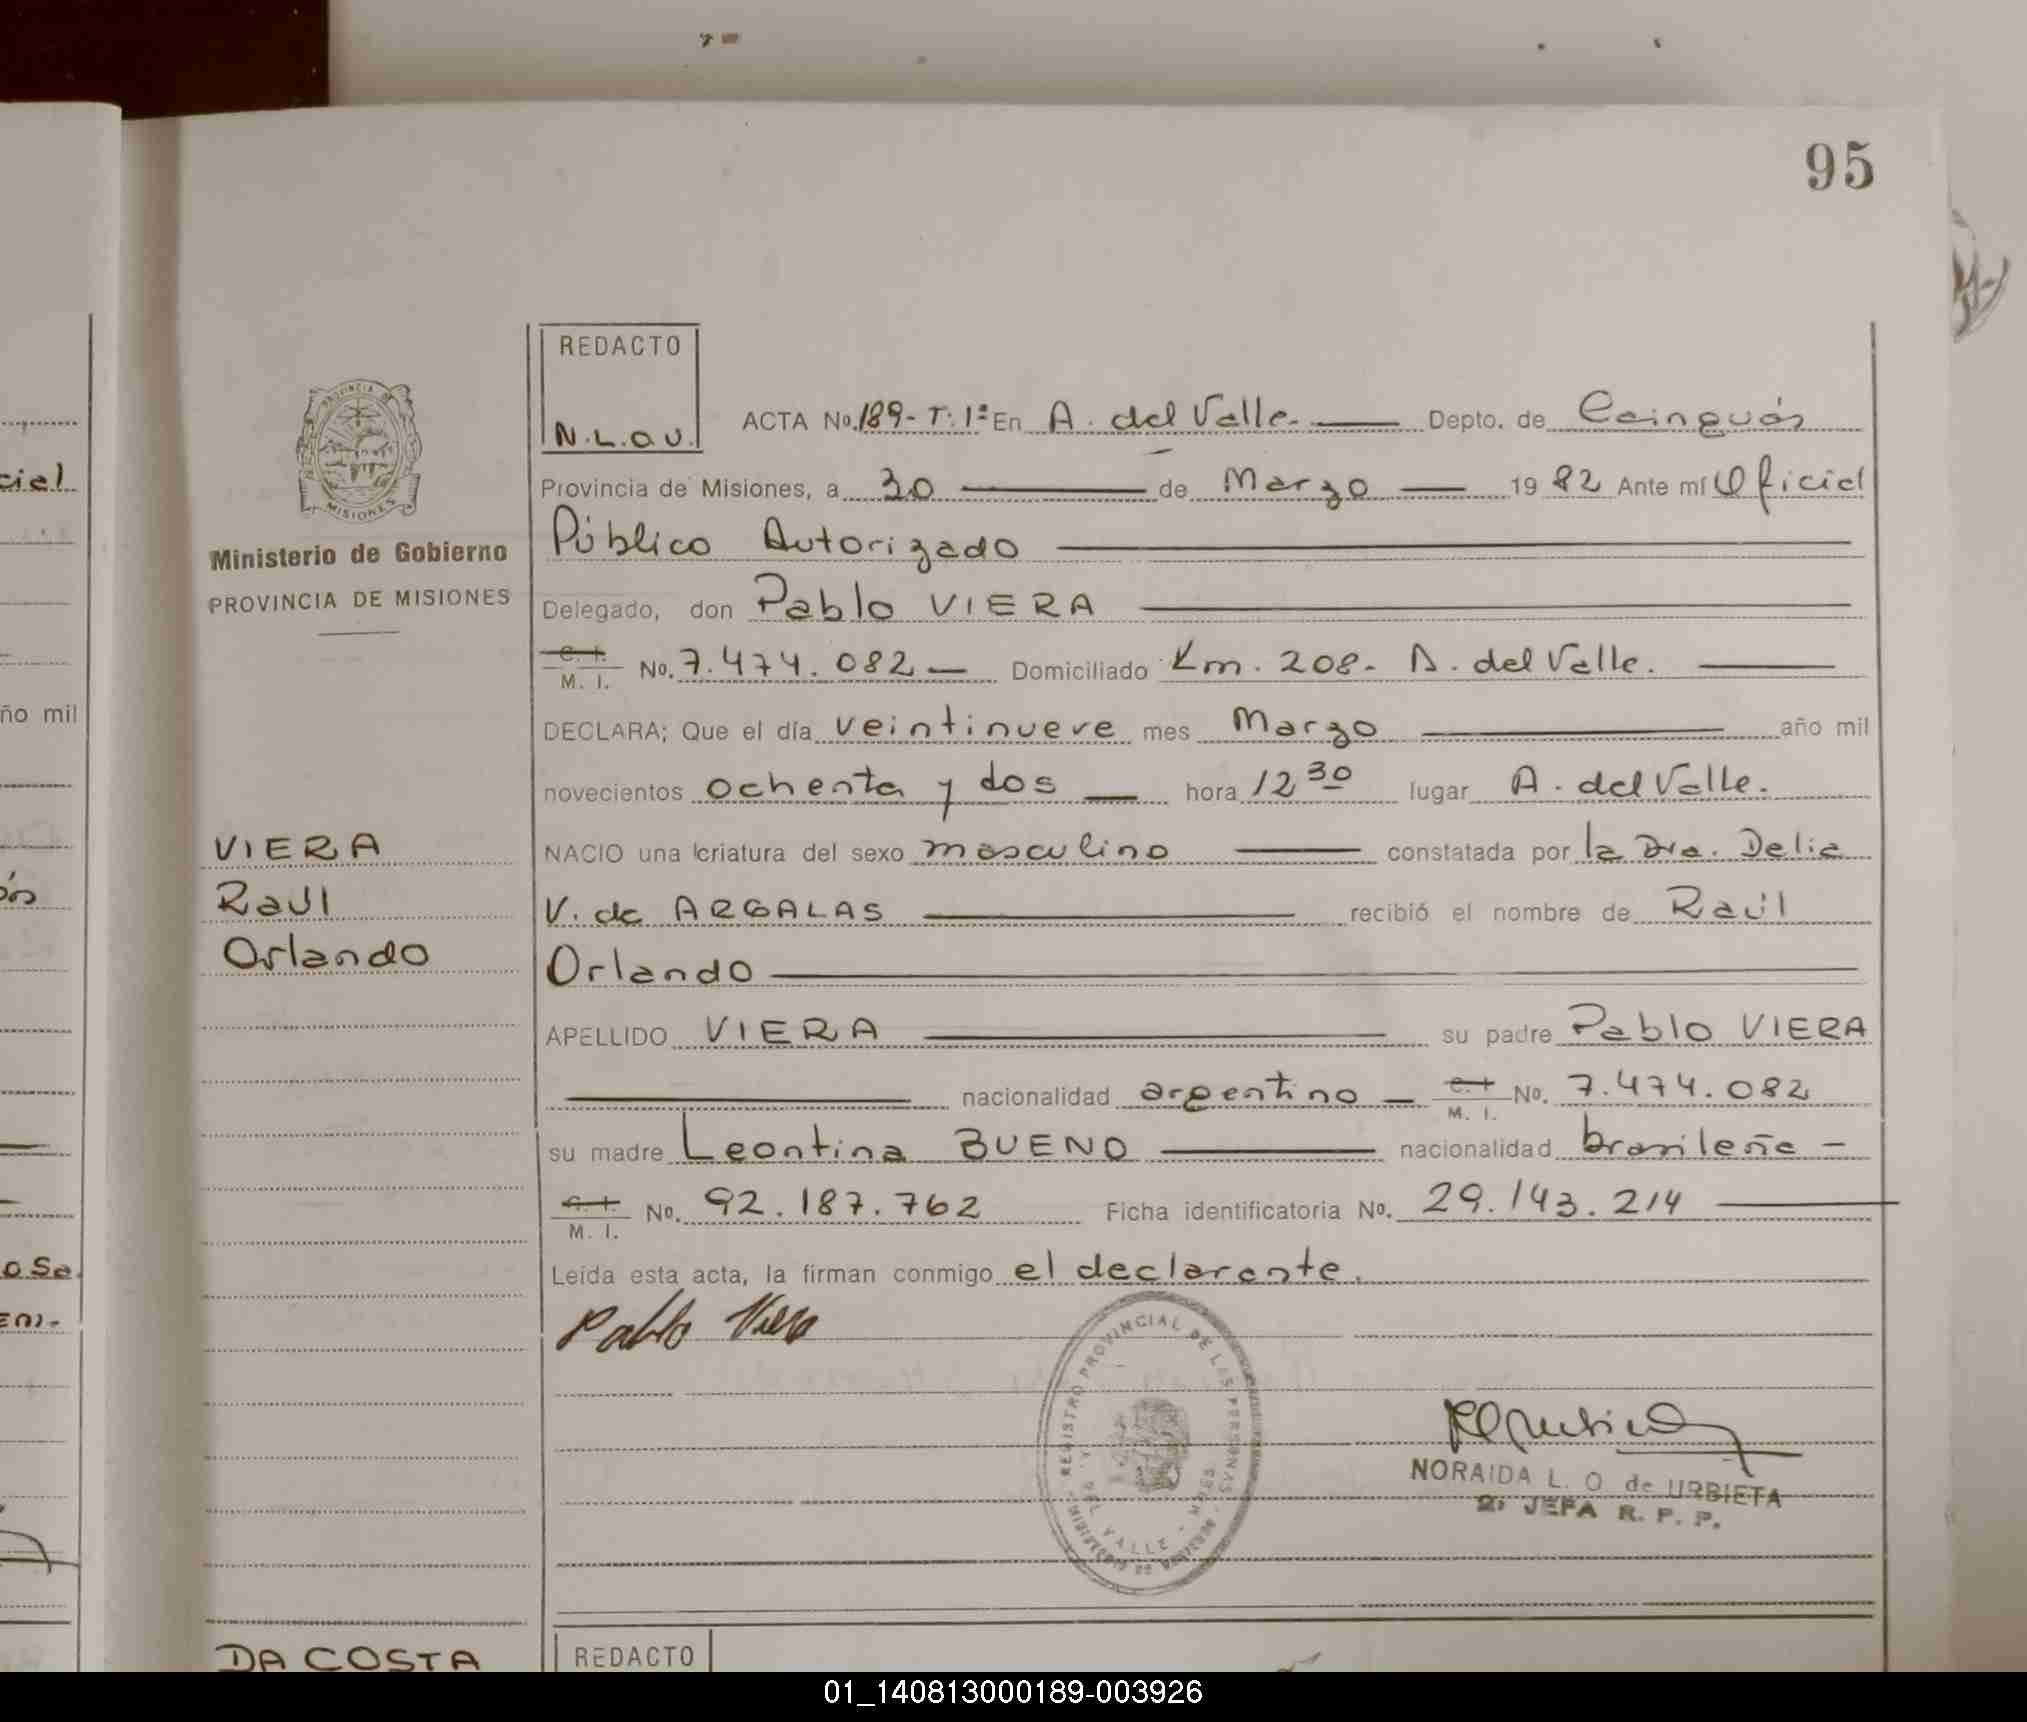 95
REDACTO
N.L.O.U.
ACTA No. 189- T: 1ª En A. del Valle. Depto. de Cainguás
Provincia de Misiones, a 30 de Marzo 1982 Ante mí Oficial
Público Autorizado
Delegado, don Pablo VIERA
C. I.
M. I. No. 7.474.082 Domiciliado Km. 208- A. del Valle.
DECLARA; Que el día veintinueve mes Marzo año mil
novecientos ochenta y dos hora 12 30 lugar A. del Valle.
NACIO una criatura del sexo masculino constatada por la Dra. Delia
V. de ARGALAS recibió el nombre de Raúl
Orlando
APELLIDO VIERA su padre Pablo VIERA
nacionalidad argentino C. I. M. I. No. 7.474.082
su madre Leontina BUENO nacionalidad brasileña -
C. I.
M. I. No. 92.187.762 Ficha identificatoria No. 29.143.214
Leída esta acta, la firman conmigo el declarante.
Pablo Viera
REGISTRO PROVINCIAL DE LAS PERSONAS
DEL VALLE - MNES
NORAIDA L. O. de URBIETA
2º JEFA R. P. P.
PROVINCIA DE
MISIONES
Ministerio de Gobierno
PROVINCIA DE MISIONES
VIERA
Raúl
Orlando
DA COSTA
REDACTO
cial
ño mil
o Se
01_140813000189-003926